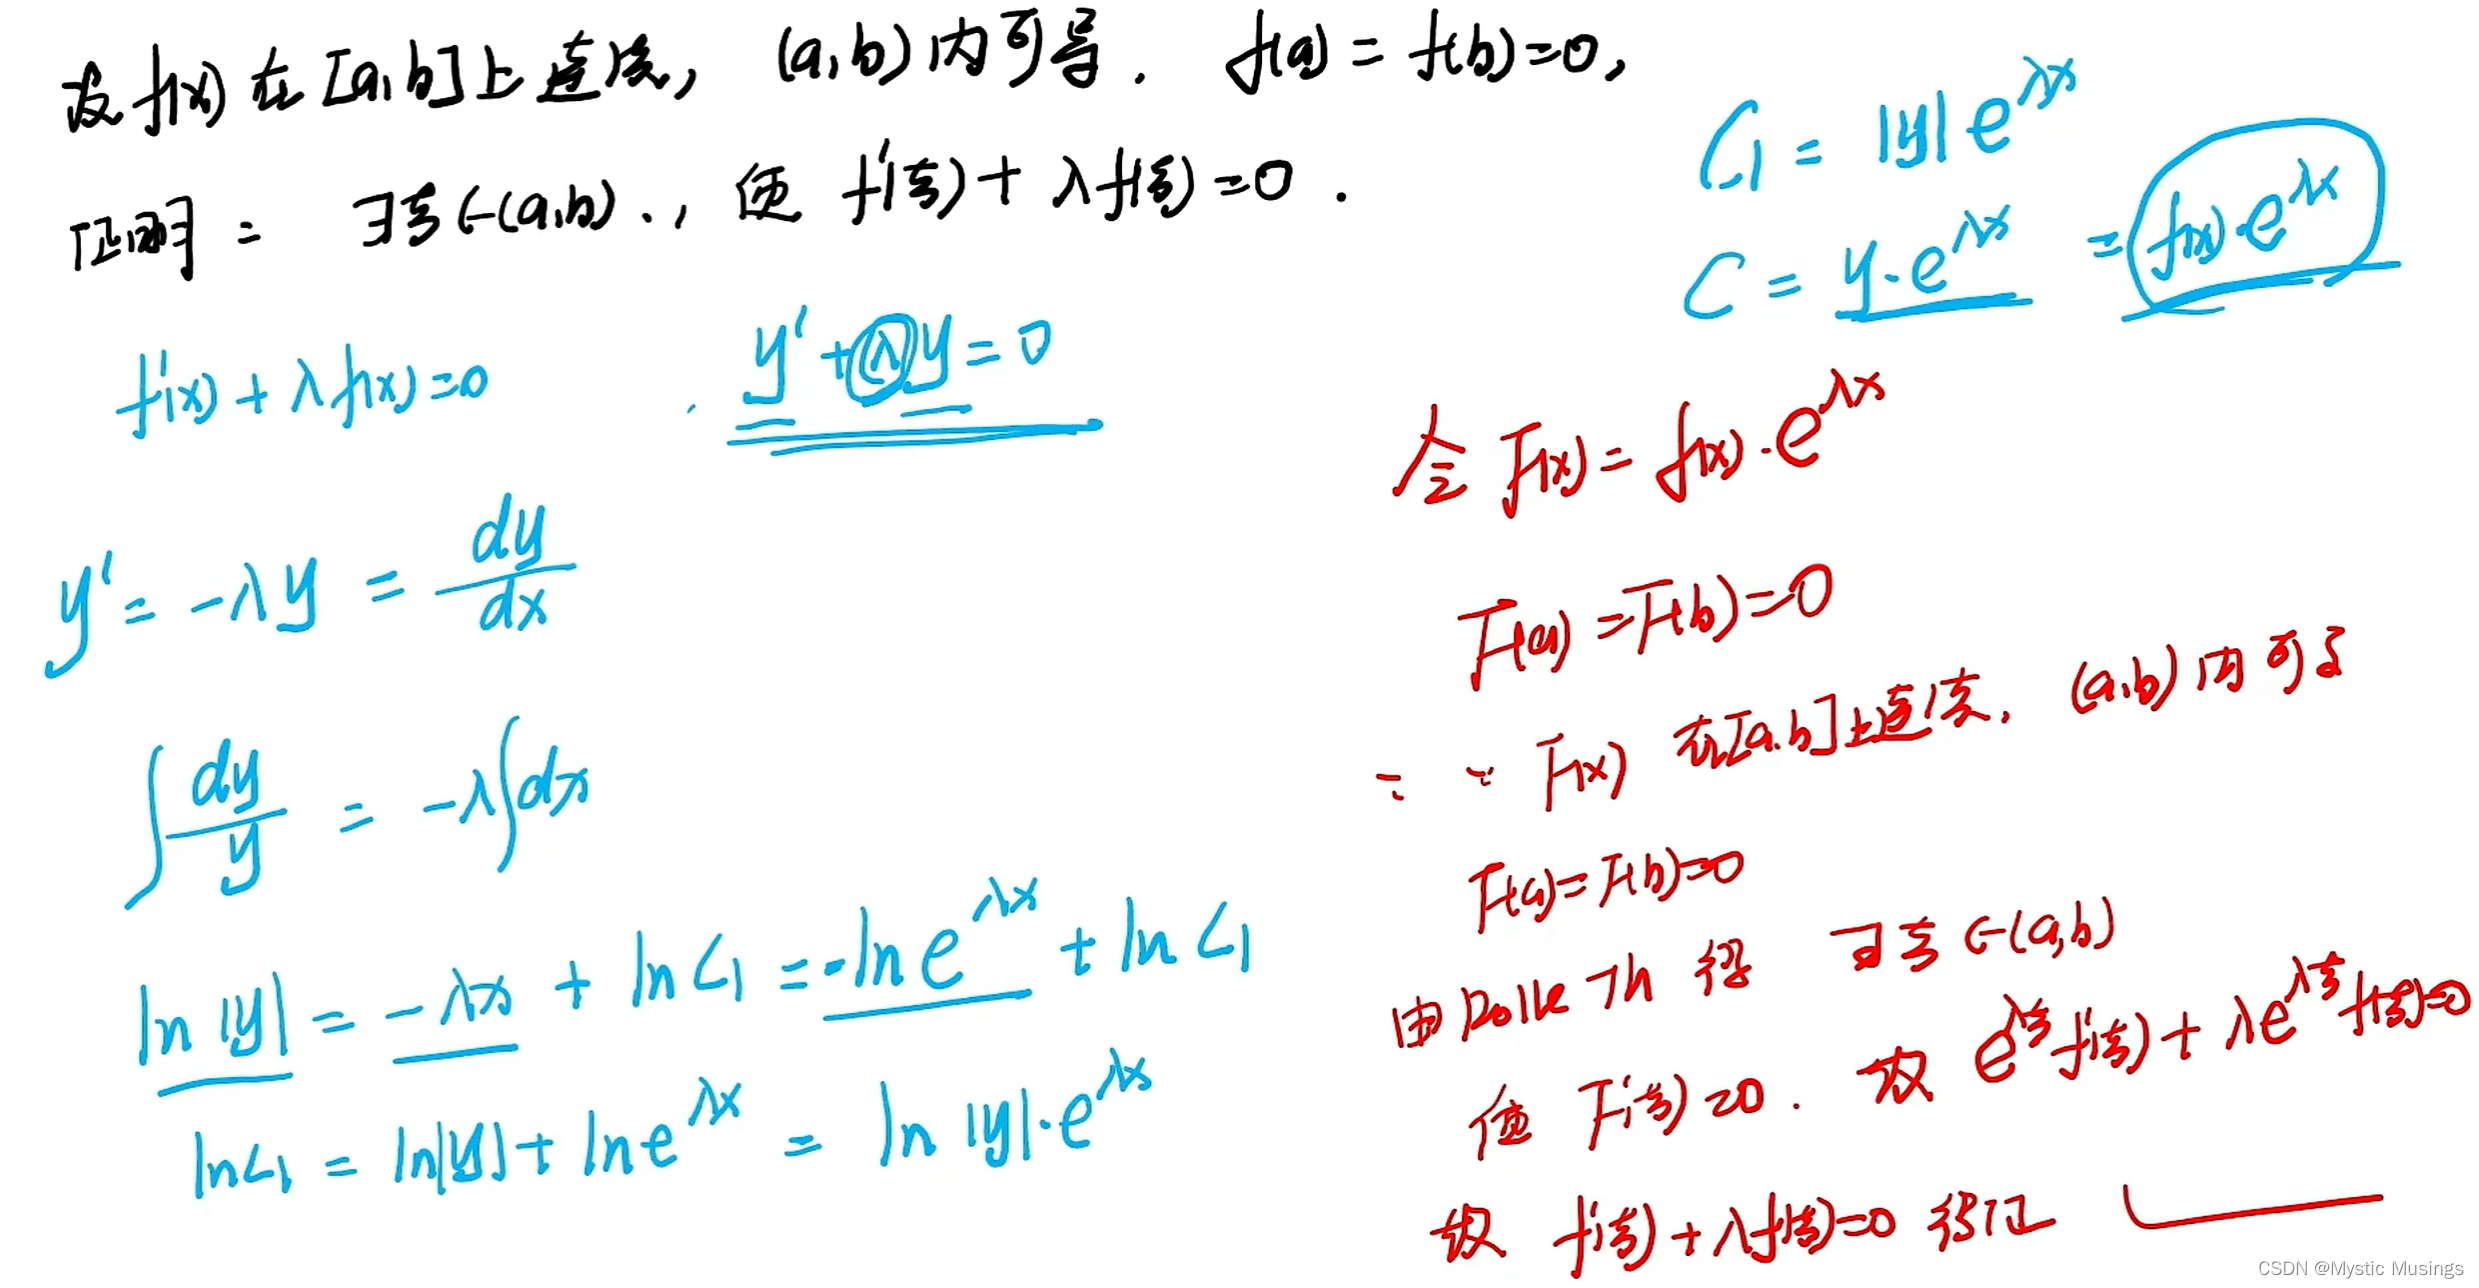 设 f(x) 在 [a,b] 上连续, (a,b) 内可导. f(a) = f(b)=0,
证明: ∃ξ∈(a,b)., 使 f'(ξ) + λf(ξ) = 0 .
f'(x) + λf(x) = 0
y' + λy = 0
y' = -λy = dy/dx
∫ dy/y = -λ∫dx
ln|y| = -λx + lnC₁ = -ln e^{λx} + ln C₁
lnC₁ = ln|y| + ln e^{λx} = ln |y|·e^{λx}
C₁ = |y| e^{λx}
C = y·e^{λx} = f(x)·e^{λx}
令 F(x) = f(x)·e^{λx}
F(a) = F(b) = 0
= ∵ F(x) 在[a,b]上连续, (a,b) 内可导
F(a) = F(b) = 0
由 Rolle Th 得 ∃ξ∈(a,b)
使 F'(ξ) = 0. 故 e^{λξ}f'(ξ) + λe^{λξ}f(ξ) = 0
故 f'(ξ) + λf(ξ) = 0 得证
CSDN @Mystic Musings